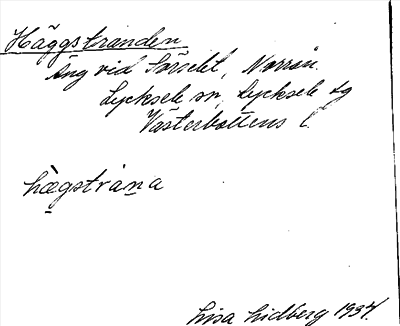 Häggstranden
Äng vid Sörselet, Norrån.
Lycksele sn, Lycksele lg
Västerbottens l.
hægstrana
Lisa Lidberg 1937.